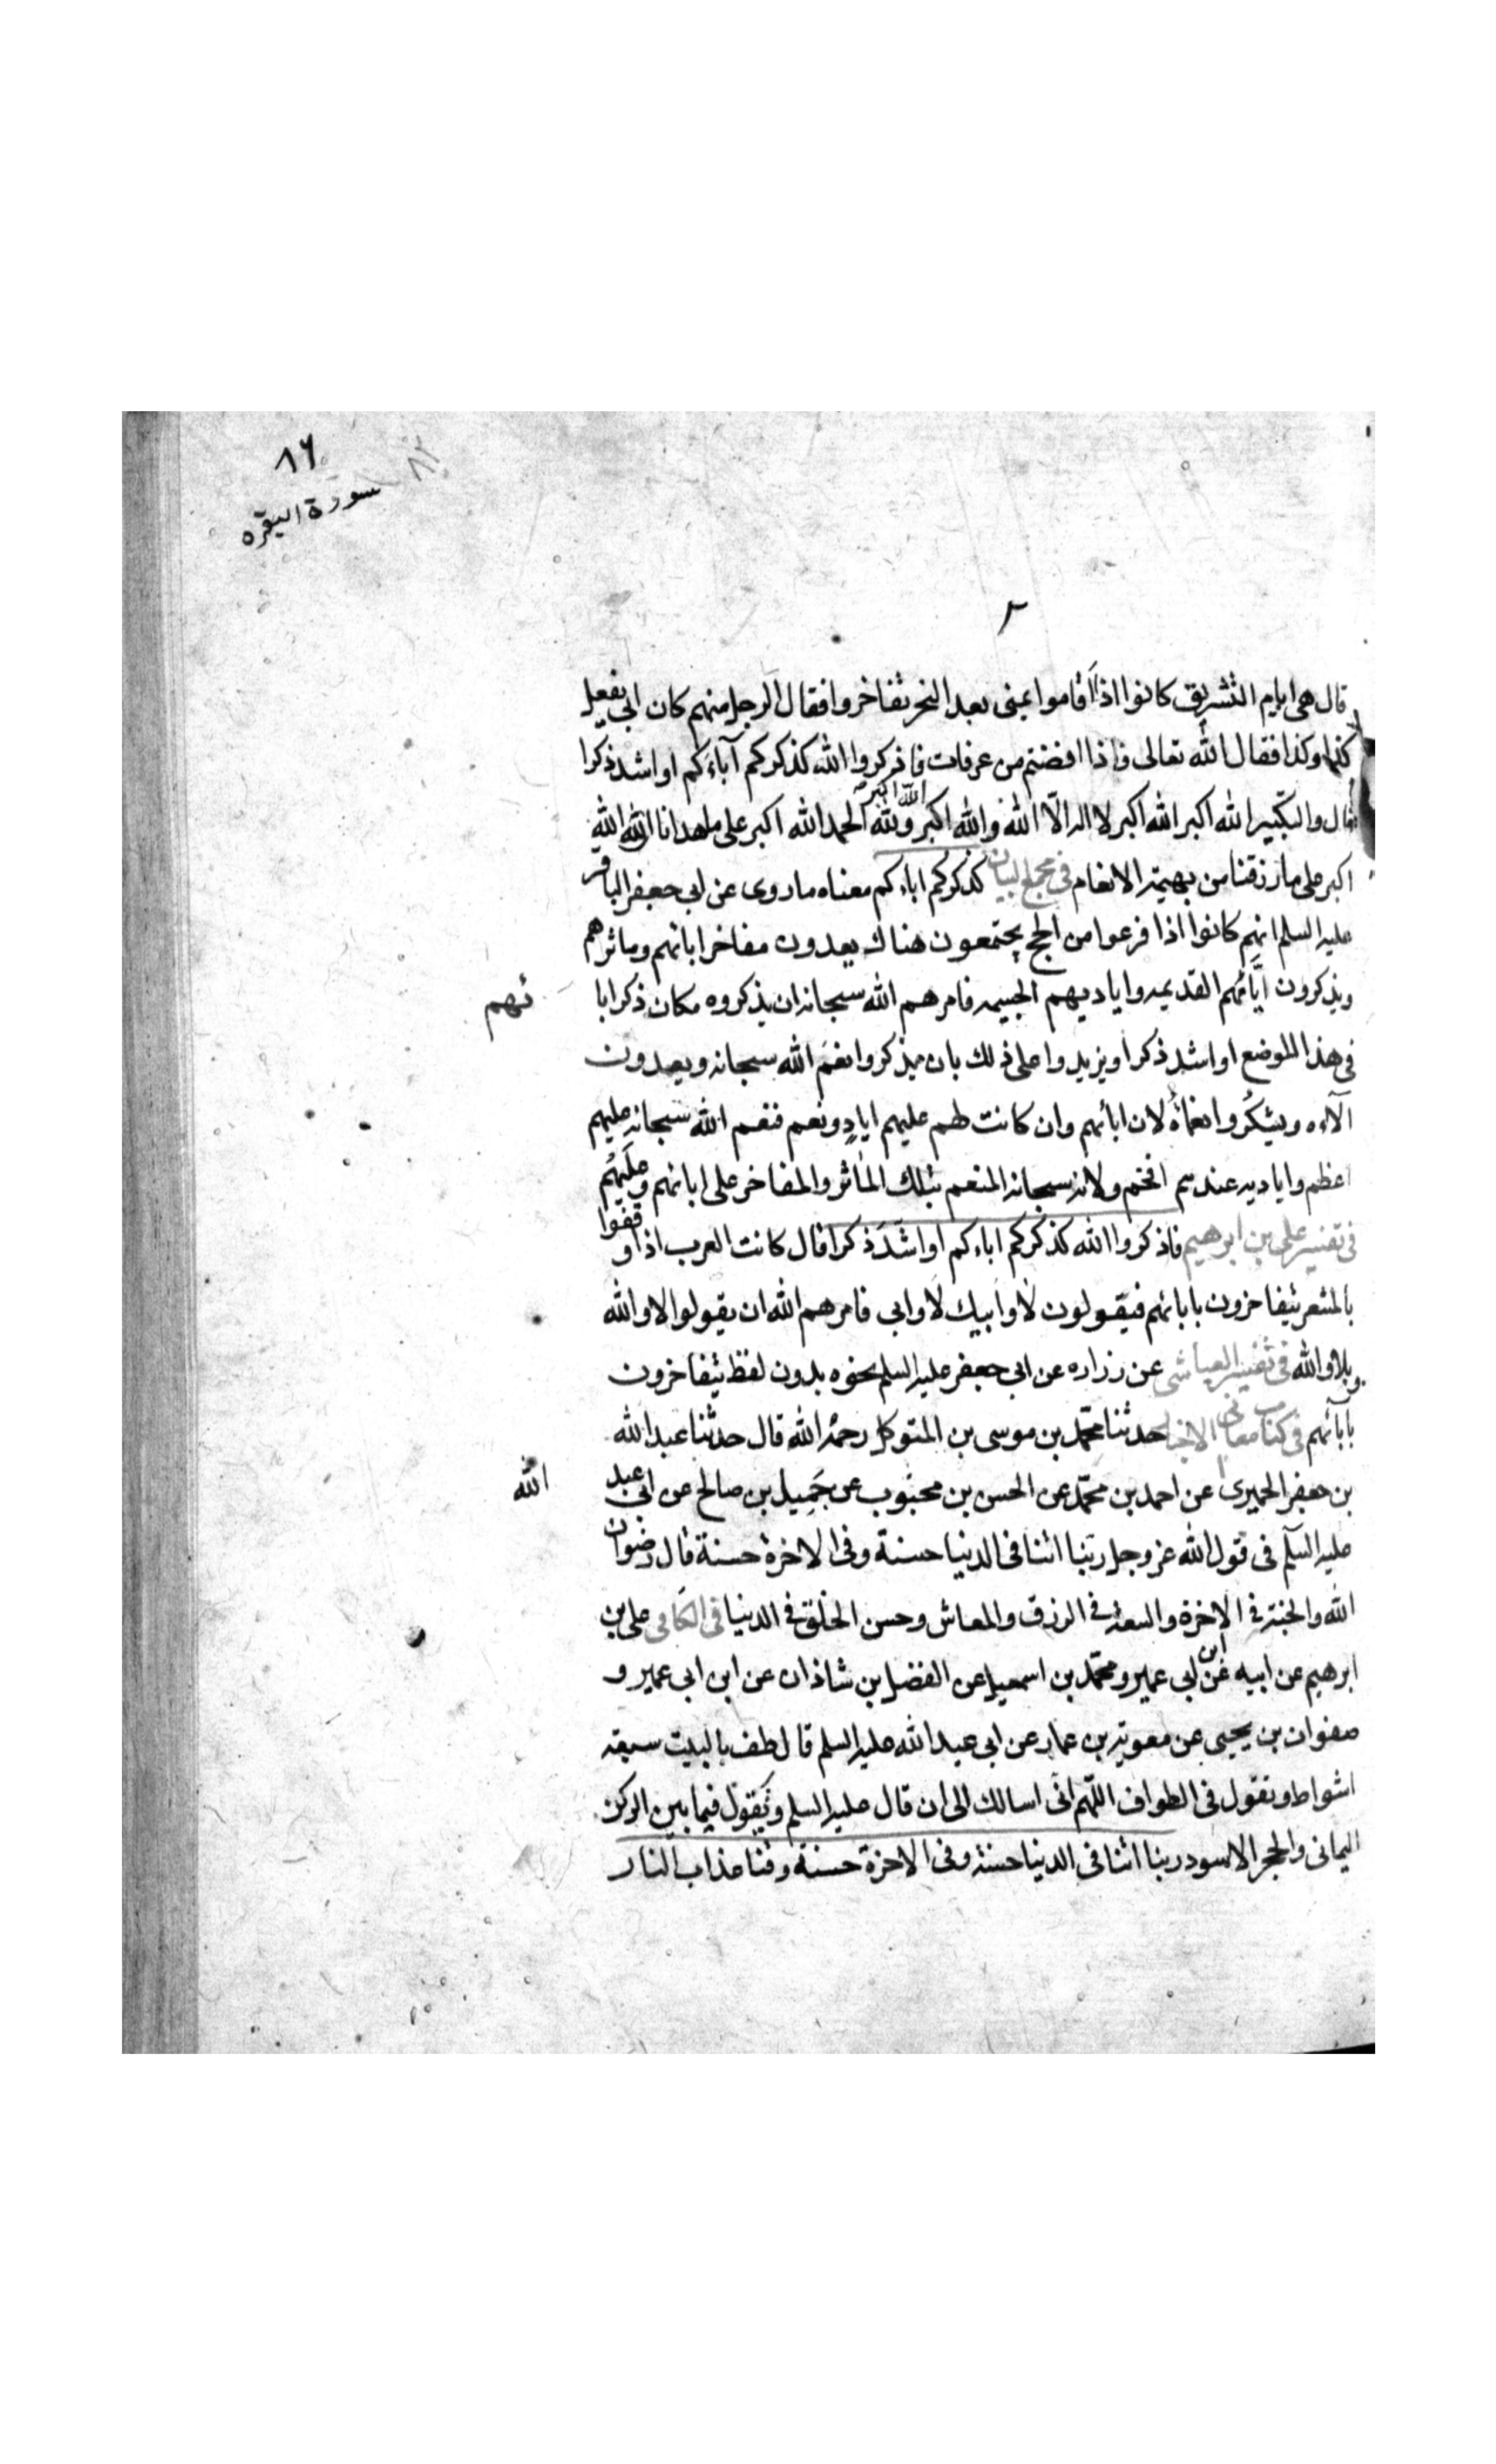 ٨٦
٨٢
سورة البقره
٢
قال هى ايام التشريق كانوا اذا اقاموا بمنى بعد النحر تفاخروا فقال الرجل منهم كان ابى يفعل
كذا وكذا فقال الله تعالى فاذا افضتم من عرفات فاذكروا الله كذكركم آباءكم او اشد ذكرا
قال والتكبير الله اكبر الله اكبر لا اله الّا الله والله اكبر الله اكبر ولله الحمد الله اكبر على ما هدانا الله الله
اكبر على ما رزقنا من بهيمة الانعام فى مجمع البيان كذكركم اباءكم معناه ما روى عن ابى جعفر الباقر
عليه السلم انهم كانوا اذا فرغوا من الحج يجتمعون هناك يعدون مفاخر ابائهم وماثرهم
ويذكرون ايّامهم القديمه واياديهم الجسيمه فامرهم الله سبحانه ان يذكروه مكان ذكر ابا
ئهم
فى هذا الموضع او اشد ذكرا ويزيدوا على ذلك بان يذكروا نعم الله سبحانه ويعدون
آلاءه ويشكُروا نعماءُه لان ابائهم وان كانت لهم عليهم ايادٍ ونعم فنعم الله سبحانه عليهم
اعظم واياديه عندهم افخم ولانه سبحانه المنعم بتلك المآثر والمفاخر على ابائهم وعليهم
فى تفسير على بن ابرهيم فاذكروا الله كذكركم اباءكم او اشَدّ ذكرا قال كانت العرب اذا وقفوا
بالمشعر يتفاخرون بابائهم فيقولون لا وابيك لا وابى فامرهم الله ان يقولوا لا والله
وبلا والله فى تفسير العياشى عن زراره عن ابى جعفر عليه السلم نحوه بدون لفظ يتفاخرون
بابآئهم فى كتاب معانى الاخبار حدثنا محمّد بن موسى بن المتوكل رحمه الله قال حدثنا عبد الله
بن جعفر الحميرى عن احمد بن محمّد عن الحسن بن محبوب عن جَمِيل بن صالح عن ابى عبد
الله
عليه السلّم فى قول الله عز وجل ربّنا اتنا فى الدنيا حسنة وفى الاخرة حسنة قال رضوان
الله والجنة فى الاخرة والسعة فى الرزق والمعاش وحسن الخلق فى الدنيا فى الكافى على بن
ابرهيم عن ابيه عن ابن ابى عمير ومحمّد بن اسمعيل عن الفضل بن شاذان عن ابن ابى عمير و
صفوان بن يحيى عن معوية بن عمار عن ابى عبد الله عليه السلم قال طف بالبيت سبعة
اشواط وتقول فى الطواف اللّهم انى اسالك الى ان قال عليه السلم وتقول فيما بين الركن
اليمانى والحجر الاسود ربنا اتنا فى الدنيا حسنة وفى الاخرة حسنة وقنا عذاب النار